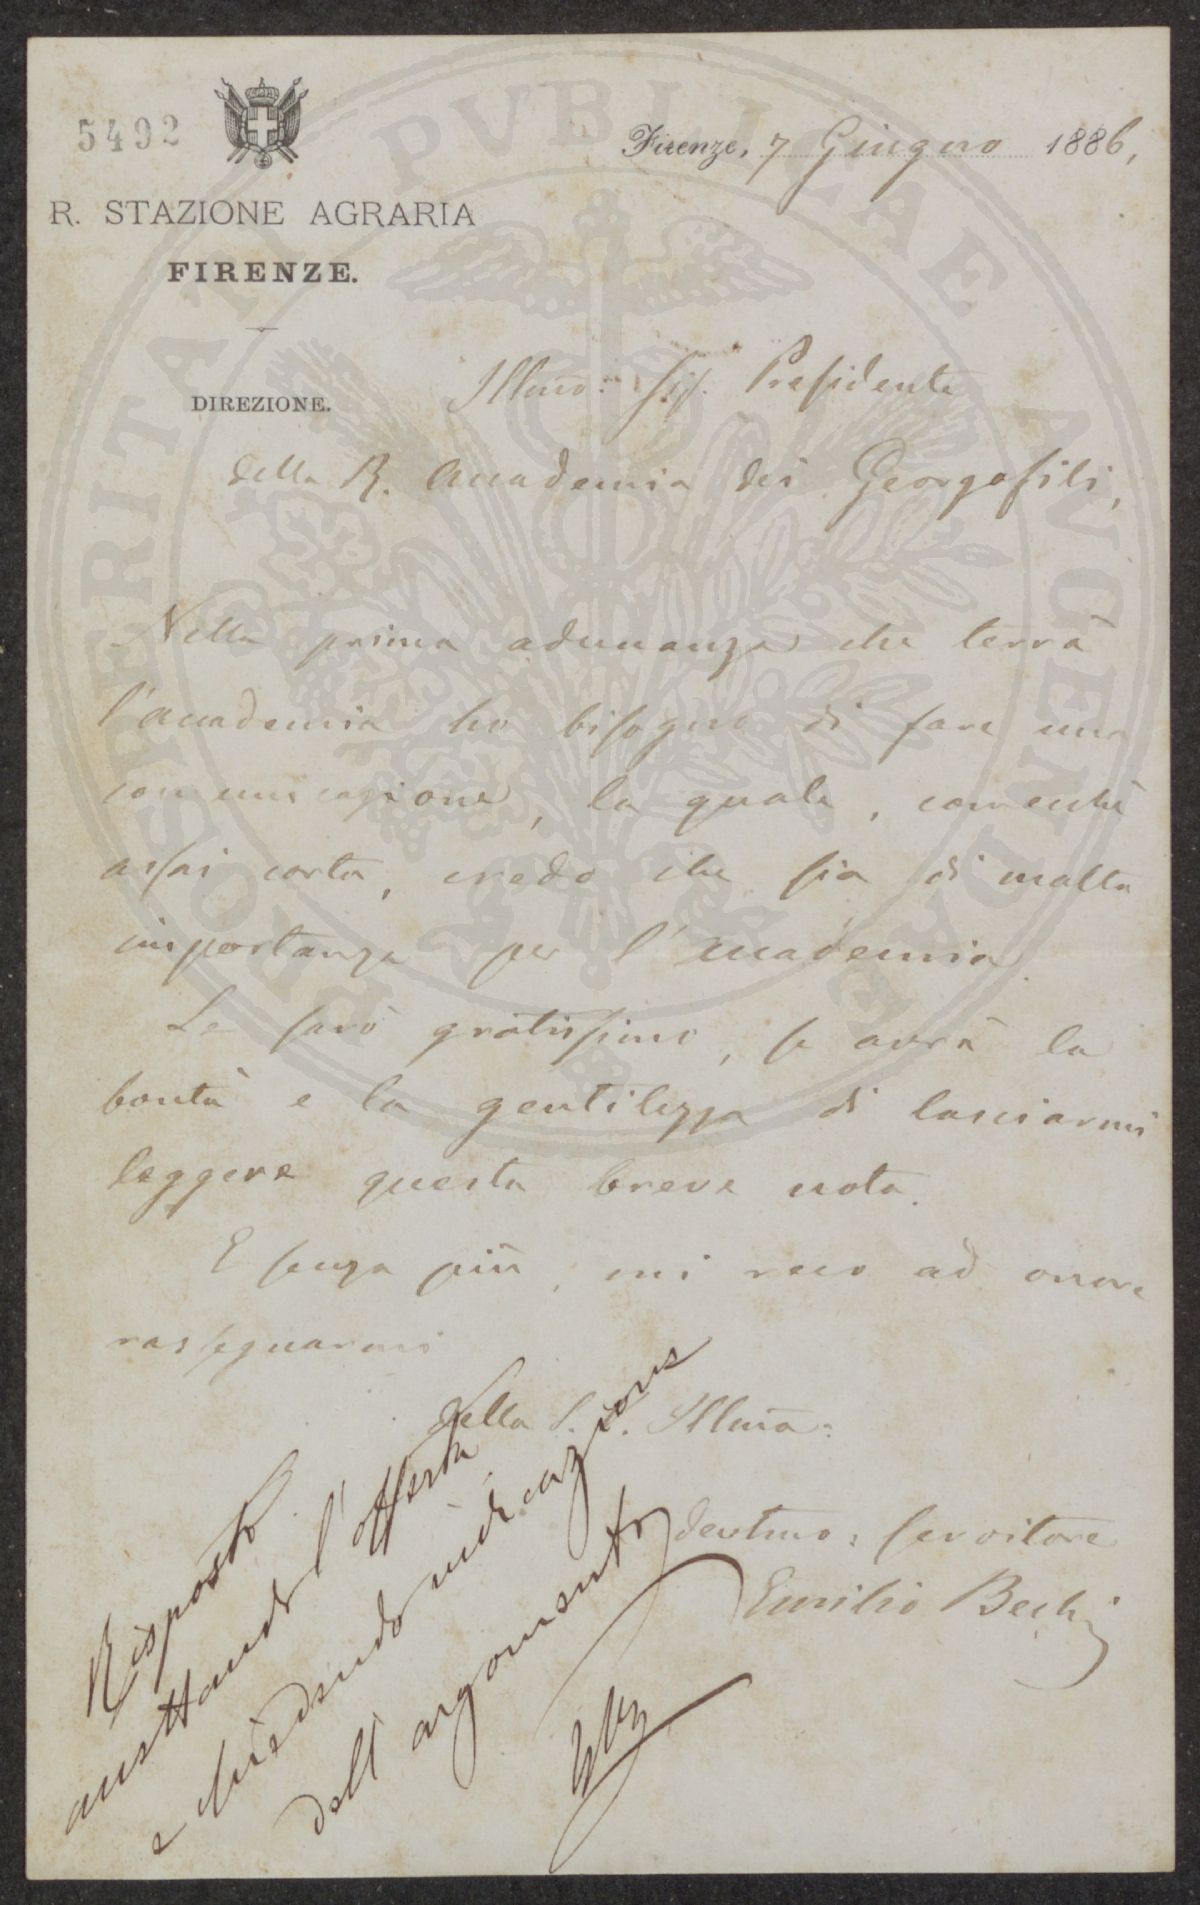 5492
R. STAZIONE AGRARIA
FIRENZE.
DIREZIONE.
Firenze, 7 Giugno 1886,
Illmo: Sig. Presidente
della R. Accademia dei Georgofili,
Nella prima adunanza che terrà
l'accademia ho bisogno di fare una
comunicazione, la quale, comechè
assai corta, credo che sia di molta
importanza per l'Accademia.
Le sarò gratissimo, se avrà la
bontà e la gentilezza di lasciarmi
leggere questa breve nota.
E senza più, mi reco ad onore
rassegnarmi
Della S. V. Illma:
devtmo: servitore
Emilio Bechi
Risposto
accettando l'offerta
e chiedendo indicazione
dell'argomento
PROSPERITATI PVBLICAE AVGENDAE